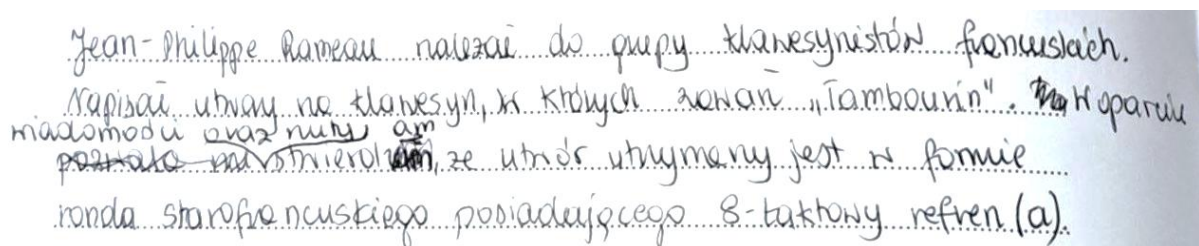 Jean-Philippe Rameau należał do grupy klawesynistów francuskich.
Napisał utwory na klawesyn, w których zawarł „Tambourin". W oparciu
wiadomości oraz nuty am
stwierdzam, że utwór utrzymany jest w formie
ronda starofrancuskiego posiadającego 8-taktowy refren (a).